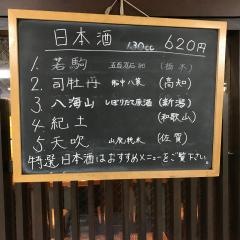 日本酒 130cc 620円
1. 若駒 五百万石80 (栃木)
2. 司牡丹 船中八策 (高知)
3. 八海山 しぼりたて原酒 (新潟)
4 紀土 (和歌山)
5 天吹 山廃純米 (佐賀)
特選日本酒はおすすめメニューをご覧下さい。